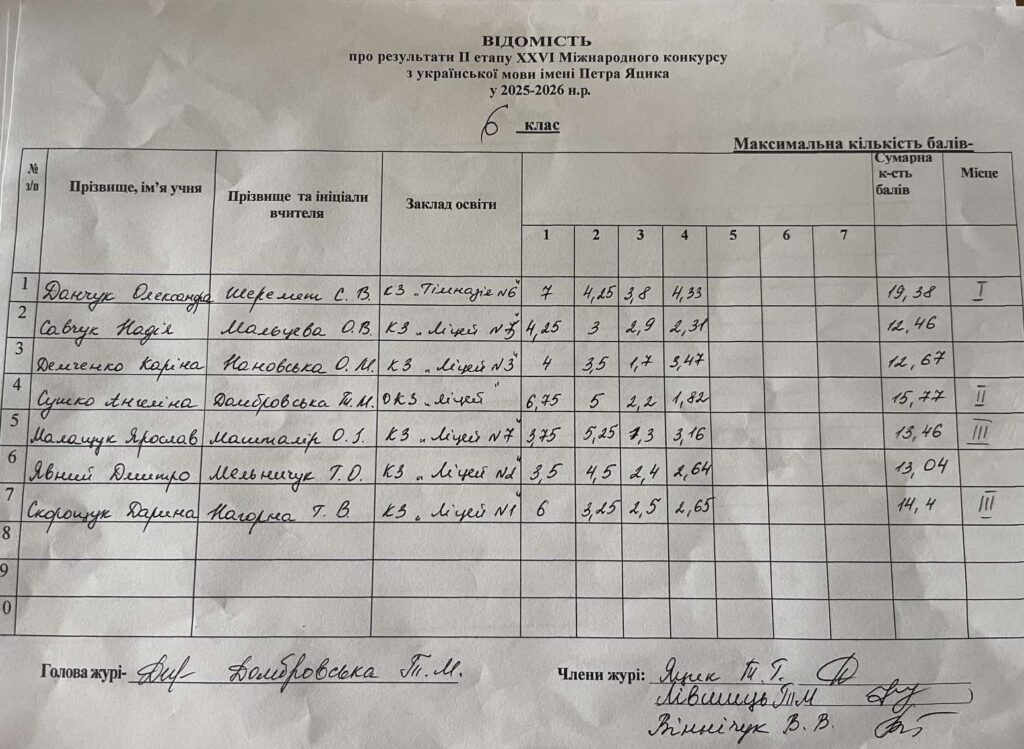 ВІДОМІСТЬ
про результати ІІ етапу XXVI Міжнародного конкурсу
з української мови імені Петра Яцика
у 2025-2026 н.р.
6 клас
Максимальна кількість балів-
№ з/п Прізвище, ім’я учня Прізвище та ініціали вчителя Заклад освіти 1 2 3 4 5 6 7 Сумарна к-сть балів Місце
1 Данчук Олександра Шеремет С. В. КЗ „Гімназія №6" 7 4,25 3,8 4,33 19,38 І
2 Савчук Надія Мальцева О.В. КЗ „Ліцей 4,25 3 2,9 2,31 12,46
3 Демченко Каріна Нановська О.М. КЗ „Ліцей №3" 4 3,5 1,7 3,47 12,67
4 Сушко Ангеліна Домбровська Т.М. ОКЗ „Ліцей" 6,75 5 2,2 1,82 15,77 ІІ
5 Малащук Ярослав Машталір О.І. КЗ „Ліцей №7" 3,75 5,25 1,3 3,16 13,46 ІІІ
6 Явний Дмитро Мельничук Т.О. КЗ „Ліцей №2" 3,5 4,5 2,4 2,64 13,04
7 Скорощук Дарина Нагорна Т. В КЗ „Ліцей №1" 6 3,25 2,5 2,65 14,4 ІІІ
8
9
0
Голова журі- Домбровська Т.М. Члени журі: Яцик Т.Г.
Лівшиць ТМ
Вінničук В. В.